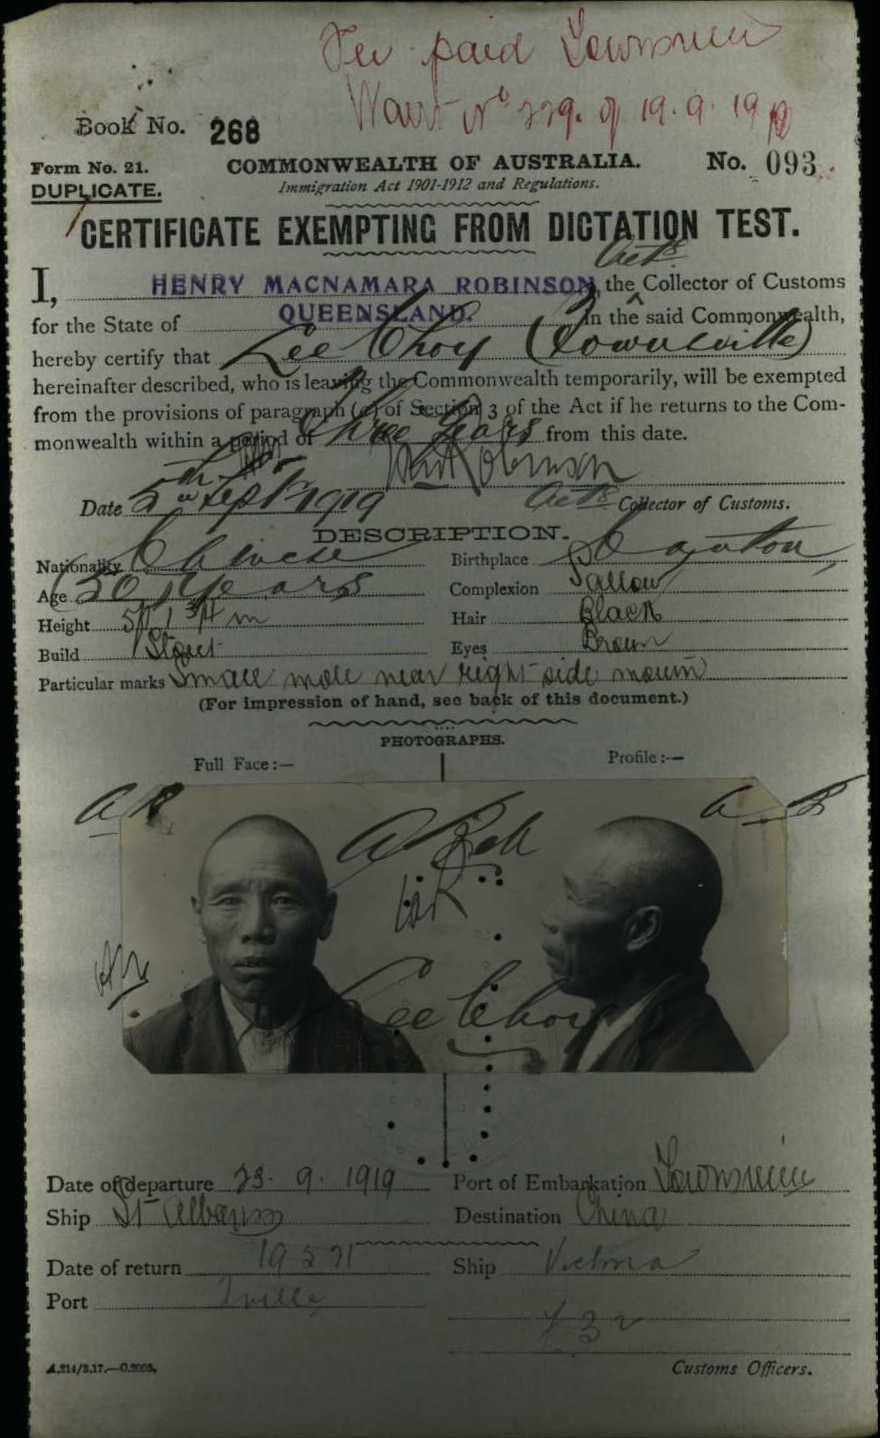 Fee paid Townsville
Warrt No 229. of 19.9.19
Book No. 268
Form No. 21.
COMMONWEALTH OF AUSTRALIA.
No. 093
DUPLICATE.
Immigration Act 1901-1912 and Regulations.
CERTIFICATE EXEMPTING FROM DICTATION TEST.
Actg
I, HENRY MACNAMARA ROBINSON, the Collector of Customs
for the State of QUEENSLAND. in the said Commonwealth,
hereby certify that Lee Choy (Townsville)
hereinafter described, who is leaving the Commonwealth temporarily, will be exempted
from the provisions of paragraph (a) of Section 3 of the Act if he returns to the Com-
monwealth within a period of Three Years from this date.
Robinson
Date 5th Sept 1919 Actg Collector of Customs.
DESCRIPTION.
Nationality Chinese Birthplace Canton
Age 50 years Complexion Sallow
Height 5ft 1 3/4 in Hair Black
Build Stout Eyes Brown
Particular marks Small mole near right side mouth
(For impression of hand, see back of this document.)
PHOTOGRAPHS.
Full Face:— Profile:—
HR
Lee Choy
Date of departure 23. 9. 1919 Port of Embarkation Townsville
Ship St Albans Destination China
Date of return 19 5 21 Ship Victoria
Port Tville
£32
A.214/3.17.—C.2008. Customs Officers.